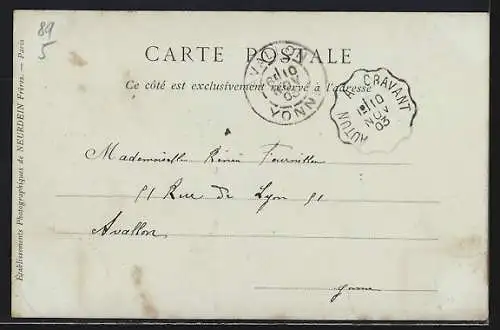 89
5
CARTE POSTALE
Ce côté est exclusivement réservé à l'adresse
AVALLON
10
NOV
03
YONNE
AUTUN A CRAVANT
1E/10
NOV
03
Mademoiselle Renée
51 Rue de Lyon 51
Avallon
Yonne
Etablissements Photographiques de NEURDEIN Frères. — Paris